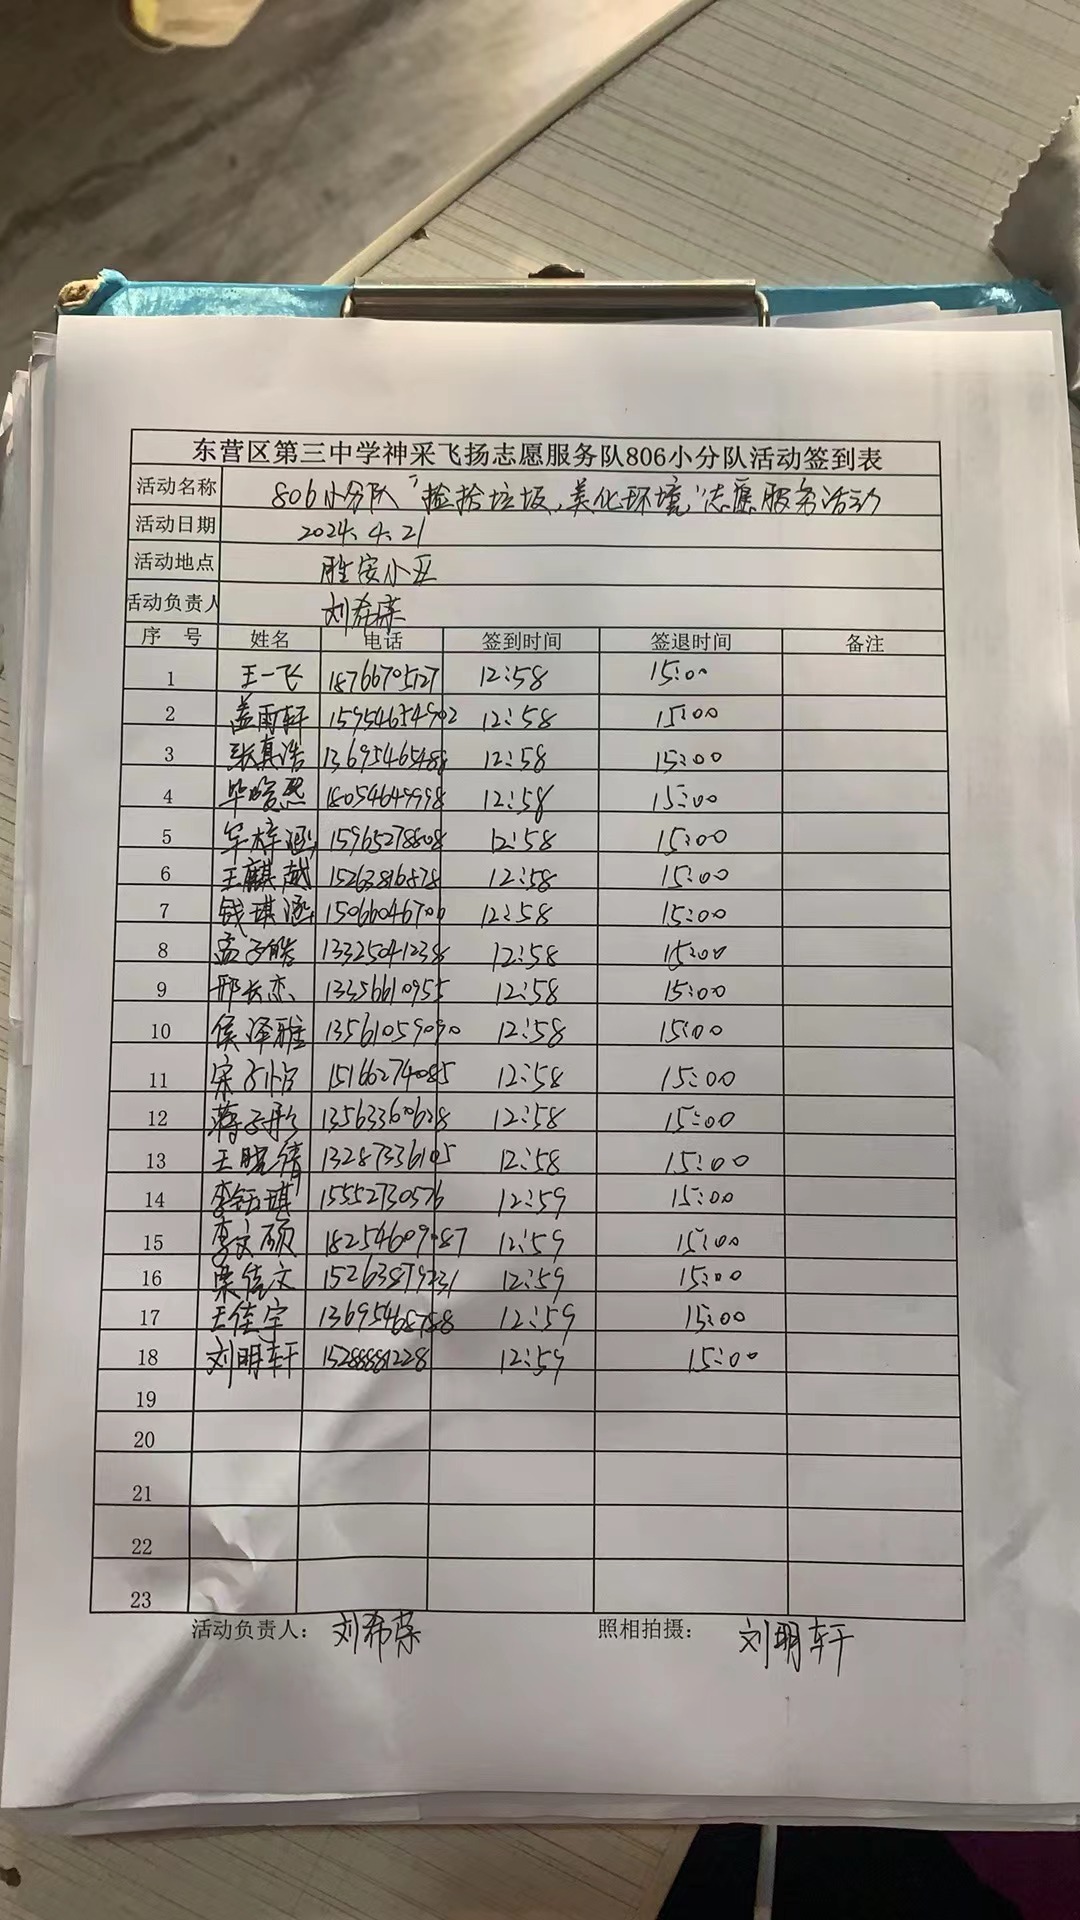 东营区第三中学神采飞扬志愿服务队806小分队活动签到表
活动名称 806小分队“捡拾垃圾,美化环境”志愿服务活动
活动日期 2024.4.21
活动地点 胜安小区
活动负责人 刘希荣
序 号 姓名 电话 签到时间 签退时间 备注
1 王一飞 18766705127 12:58 15:00
2 盖雨轩 15954654902 12:58 15:00
3 张真浩 13695465488 12:58 15:00
4 毕晙熙 18054649998 12:58 15:00
5 牟梓涵 15965278808 12:58 15:00
6 王麒越 15263816878 12:58 15:00
7 钱琪涵 15066046706 12:58 15:00
8 孟子皓 13325041238 12:58 15:00
9 邢长恋 13356610955 12:58 15:00
10 侯泽雅 13561059090 12:58 15:00
11 宋子怡 15166274085 12:58 15:00
12 蒋子彤 13563360628 12:58 15:00
13 王晓倩 13287336105 12:58 15:00
14 李钰琪 15552730576 12:59 15:00
15 李文硕 18254609087 12:59 15:00
16 栗倍文 15263879731 12:59 15:00
17 王佳宇 13695468788 12:59 15:00
18 刘明轩 15288881228 12:59 15:00
19
20
21
22
23
活动负责人： 刘希荣 照相拍摄： 刘明轩